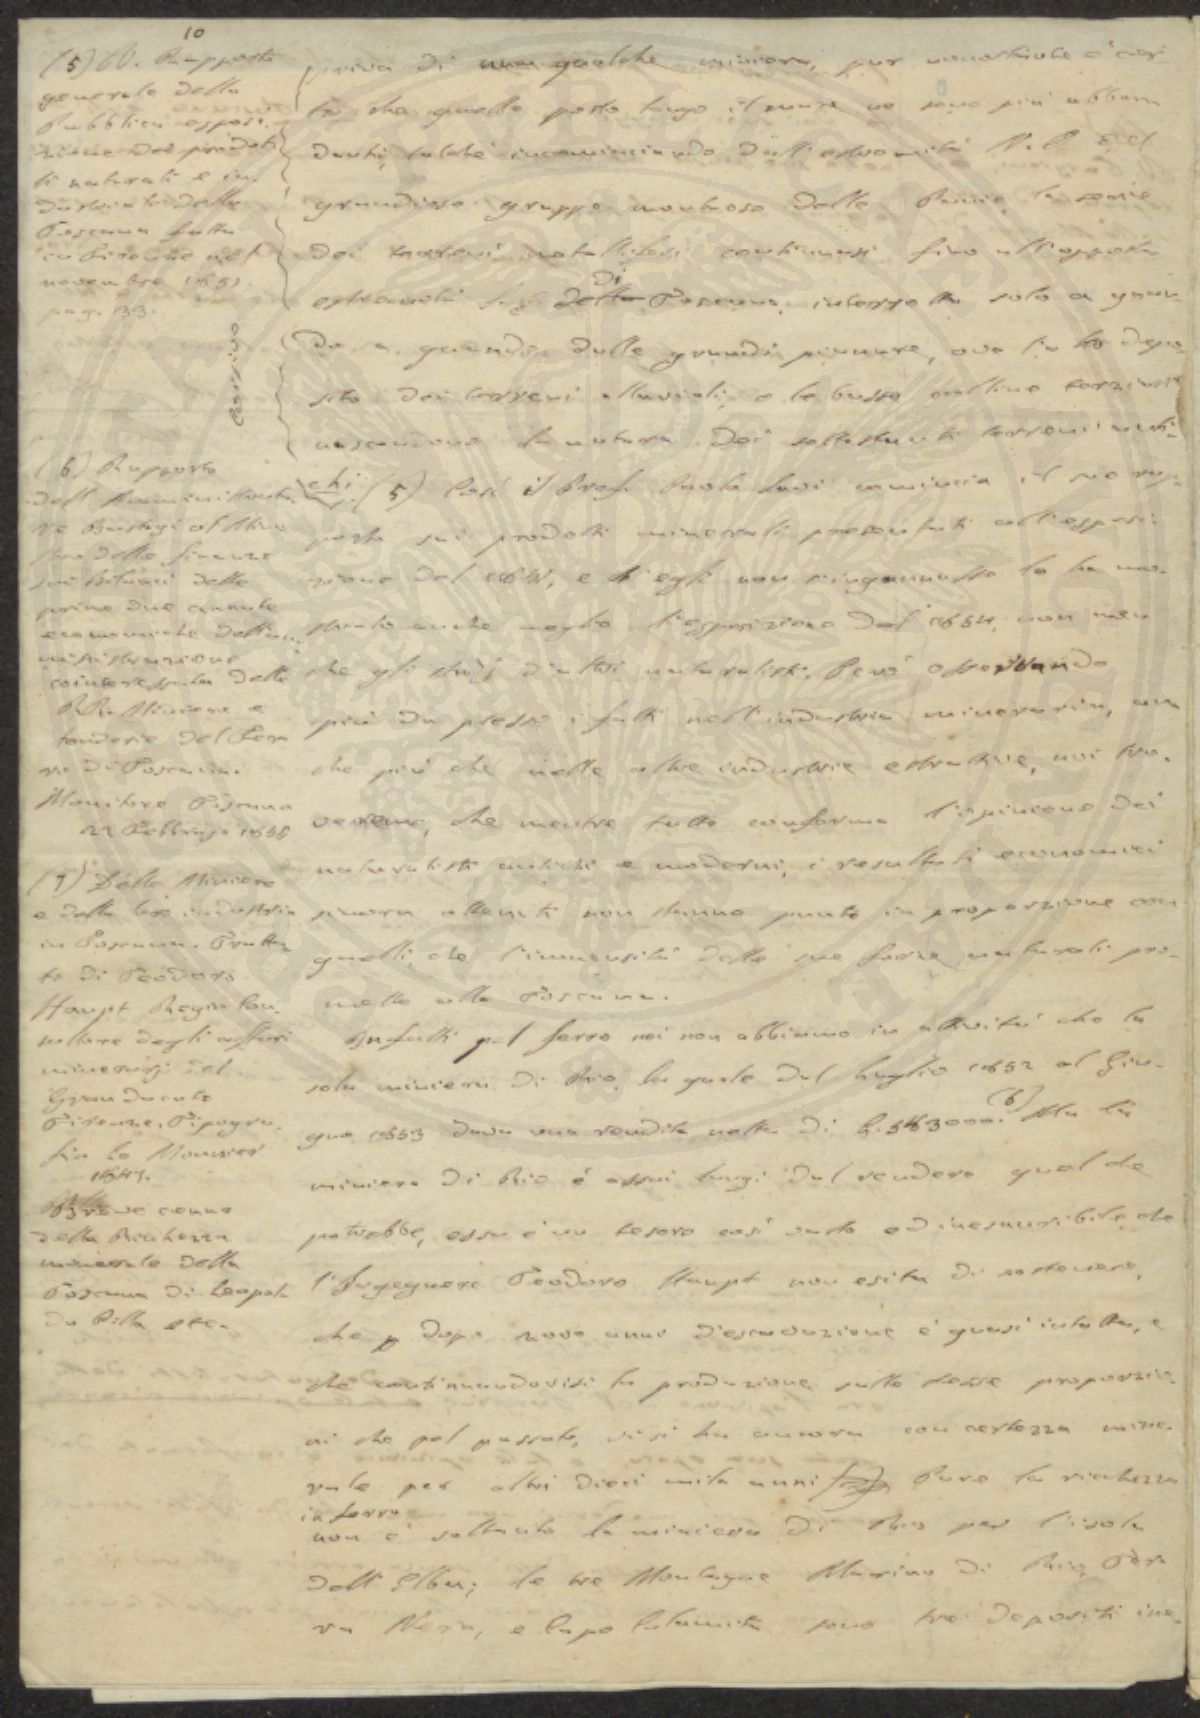 10
(5) V. Rapporto
generale della
Pubblica esposi-
zione dei prodot-
ti naturali e in-
dustriali della
Toscana fatta
in Firenze nel
novembre 1850.
pag. 33.
Corsivo
(6) Rapporto
dell'Amministrato-
re Bastogi al Mini-
stro delle finanze
sui bilanci delle
prime due annate
economiche dell'am-
ministrazione
cointeressata delle
RR. Miniere e
fonderie del Fer-
ro di Toscana.
Monitore Toscano
22 Febbrajo 1855
(7) Delle Miniere
e della loro industria
in Toscana. Tratta-
to di Teodoro
Haupt Regio Con-
sultore degli affari
minerarj del
Granducato
Firenze. Tipogra-
fia Le Monnier
Breve cenno
della Ricchezza
minerale della
Toscana di Leopol-
do Pilla etc.
priva di una qualche miniera, pur nonostante è cer-
to che quelle poste lungo il mare ne sono più abbon-
danti, talchè incominciando dall'estremità N.O. del
grandioso gruppo montuoso delle Panie, la serie
dei terreni metalliferi continuasi fino all'opposta
estremità di Toscana, interrotta solo a quan-
do a quando dalle grandi pianure, ove il deposito
sito dei terreni alluviali, o le basse colline terziarie
nascondono la natura dei sottostanti terreni anti-
chi. (5) Così il Prof. Paolo Savi comincia il suo rap-
porto sui prodotti minerali presentati all'esposi-
zione del 1850, e ch'egli non s'ingannasse lo ha mo-
strato anche meglio l'esposizione del 1854, non meno
che gli studj d'altri naturalisti. Però osservando
più da presso i fatti nell'industria mineraria, an-
che più che nelle altre industrie estrattive, noi tro-
veremo, che mentre tutto conferma l'opinione dei
naturalisti antichi e moderni, i resultati economici
sinora ottenuti non stanno punto in proporzione con
quelli, che l'immensità delle sue forze naturali pro-
mette alla Toscana.
Infatti pel ferro noi non abbiamo in attività che la
sola miniera di Rio, la quale dal luglio 1852 al Giu-
gno 1853 dava una rendita netta di L. 563000. (6) Ma la
miniera di Rio è assai lungi dal rendere quel che
potrebbe, essa è un tesoro così vasto ed inesauribile, che
l'Ingegnere Teodoro Haupt non esita di sostenere,
che dopo anni d'escavazione è quasi intatta, e
che continuandovisi la produzione sulle stesse proporzio-
ni che pel passato, vi si ha ancora con certezza mine-
rale per altri dieci mila anni. Pure la ricchezza
in ferro
non è soltanto la miniera di Rio per l'isola
dell'Elba; le tre Montagne Marina di Rio, Terra
Nera, e Capo Calamita sono tre depositi ine-